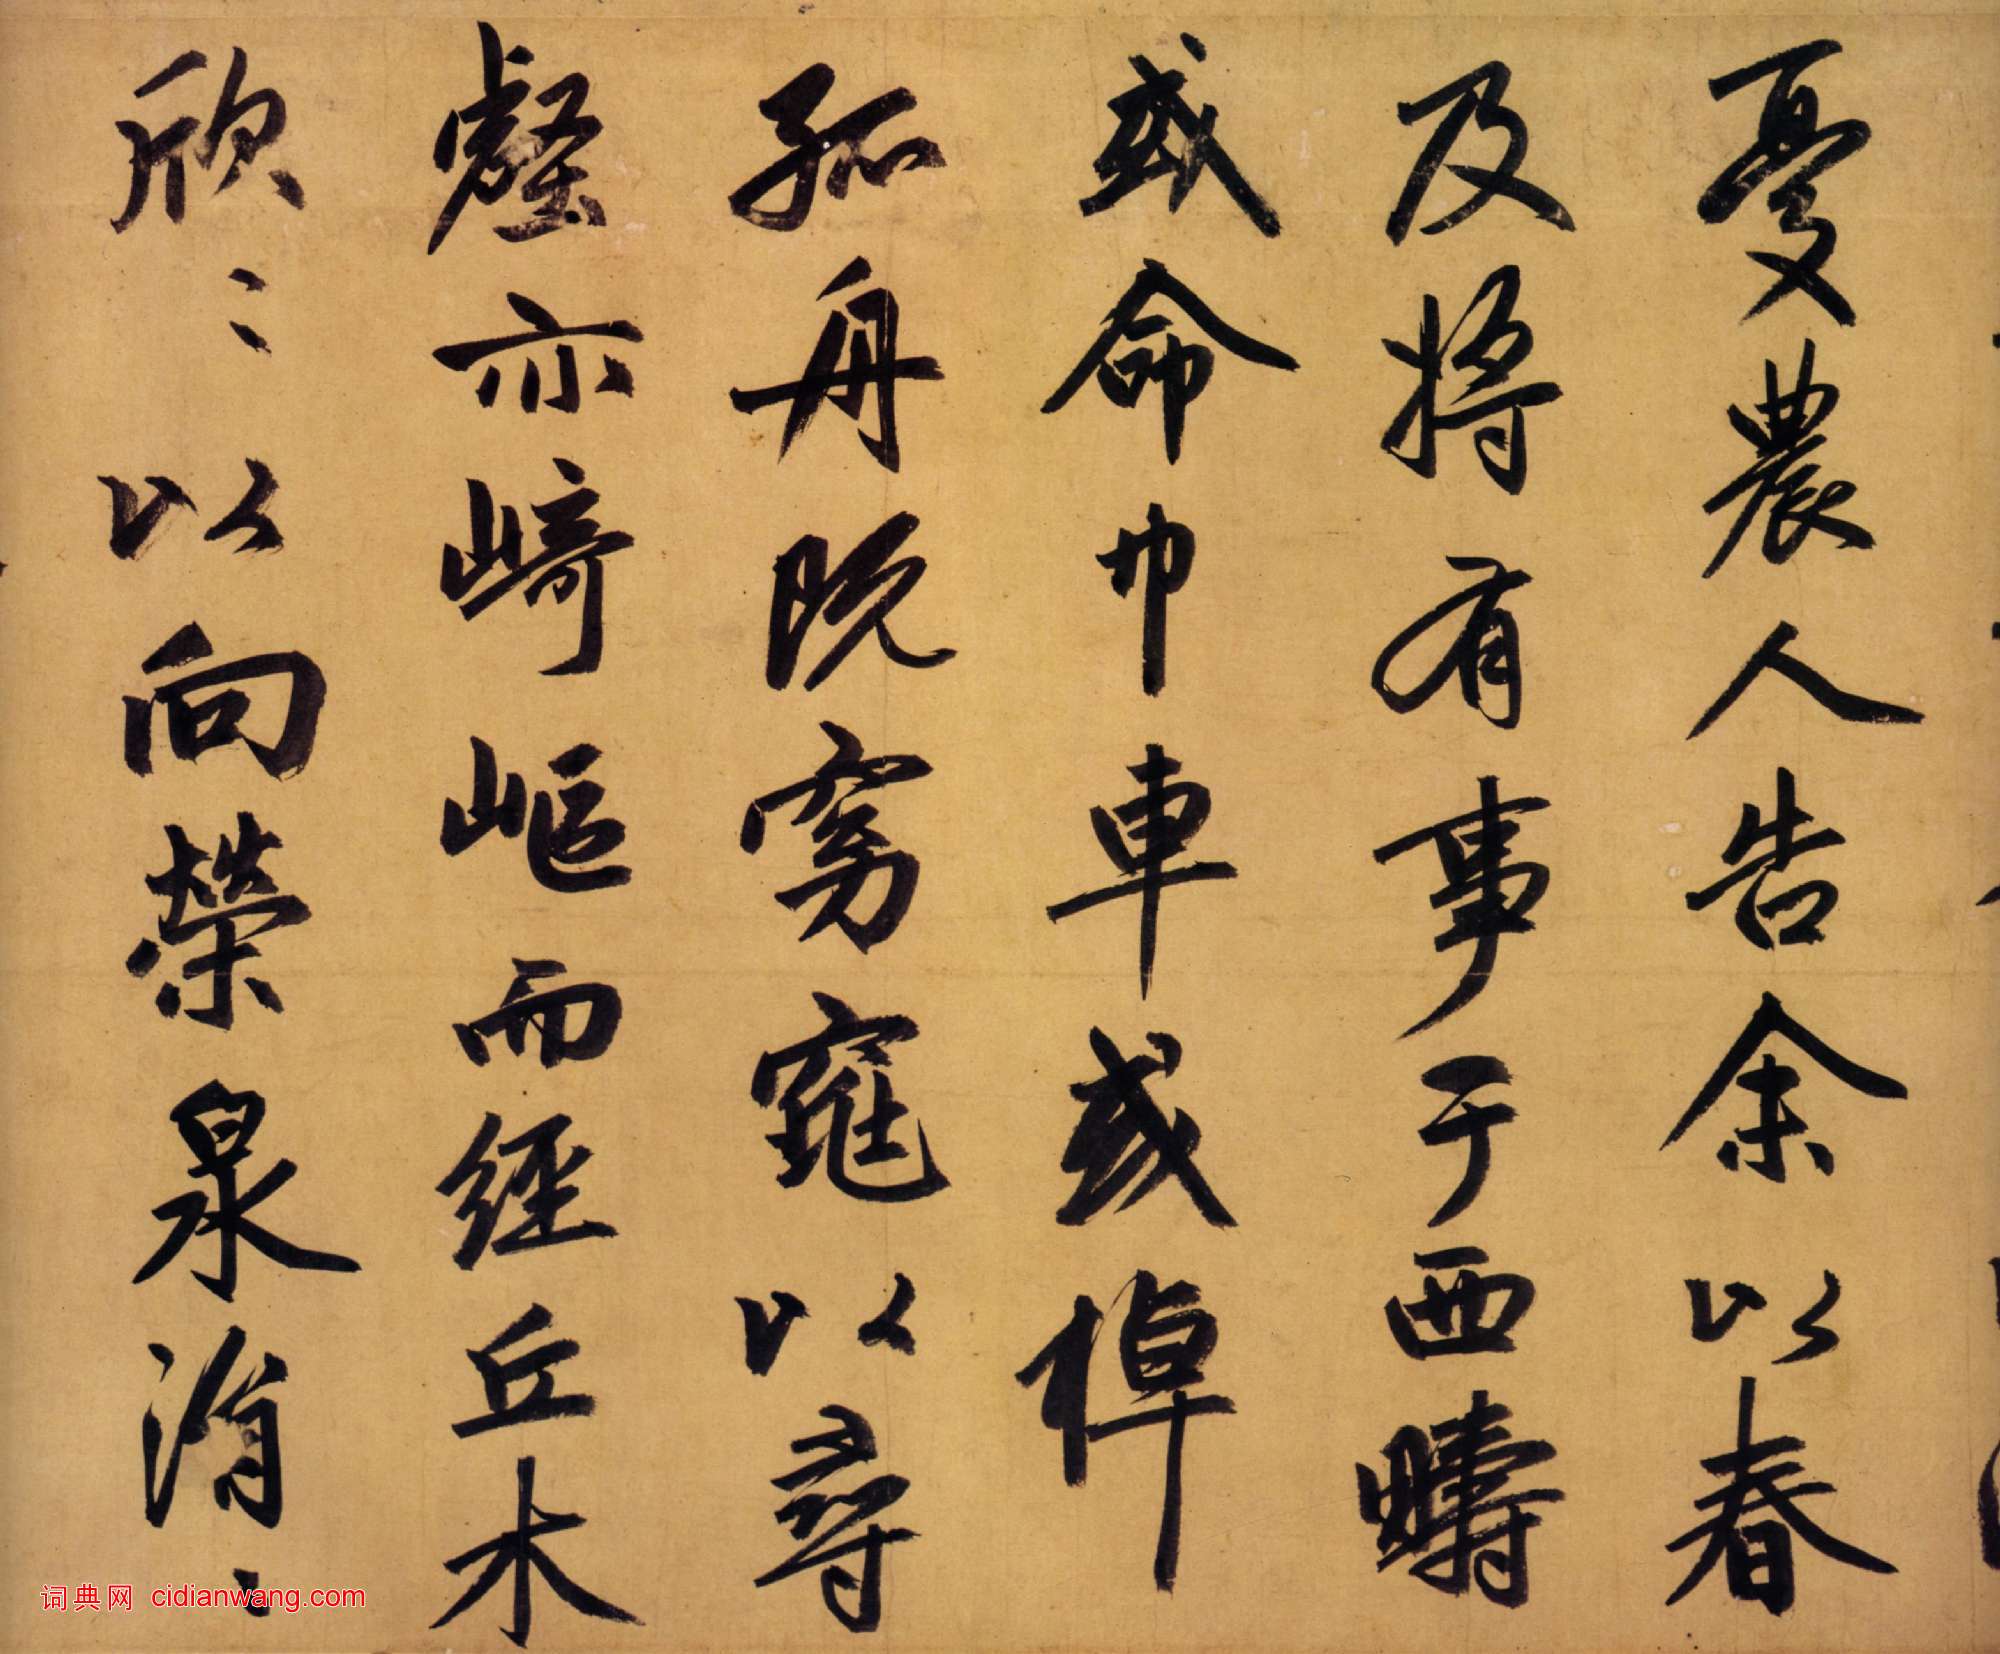 憂農人告余以春
及将有事于西疇
或命巾車或棹
孤舟既窈窕以尋
壑亦崎嶇而經丘木
欣〻以向榮泉涓〻
词典网 cidianwang.com